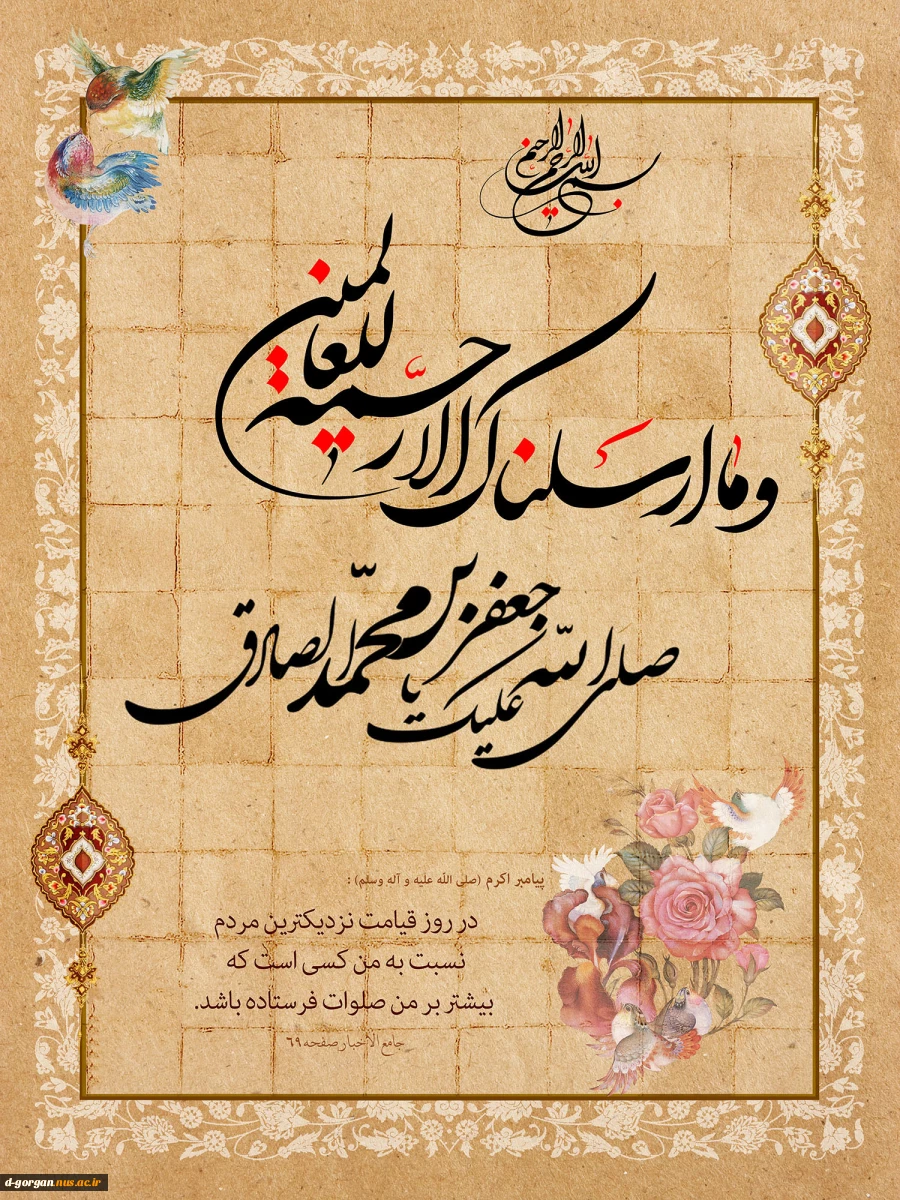 بسم الله الرحمن الرحیم
و ما ارسلناک الا رحمة للعالمین
صلی الله علیک یا جعفر بن محمّد الصادق
پیامبر اکرم (صلی الله علیه و آله وسلم) :
در روز قیامت نزدیکترین مردم
نسبت به من کسی است که
بیشتر بر من صلوات فرستاده باشد.
جامع الأخبار صفحه ۶۹
d-gorgan.nus.ac.ir